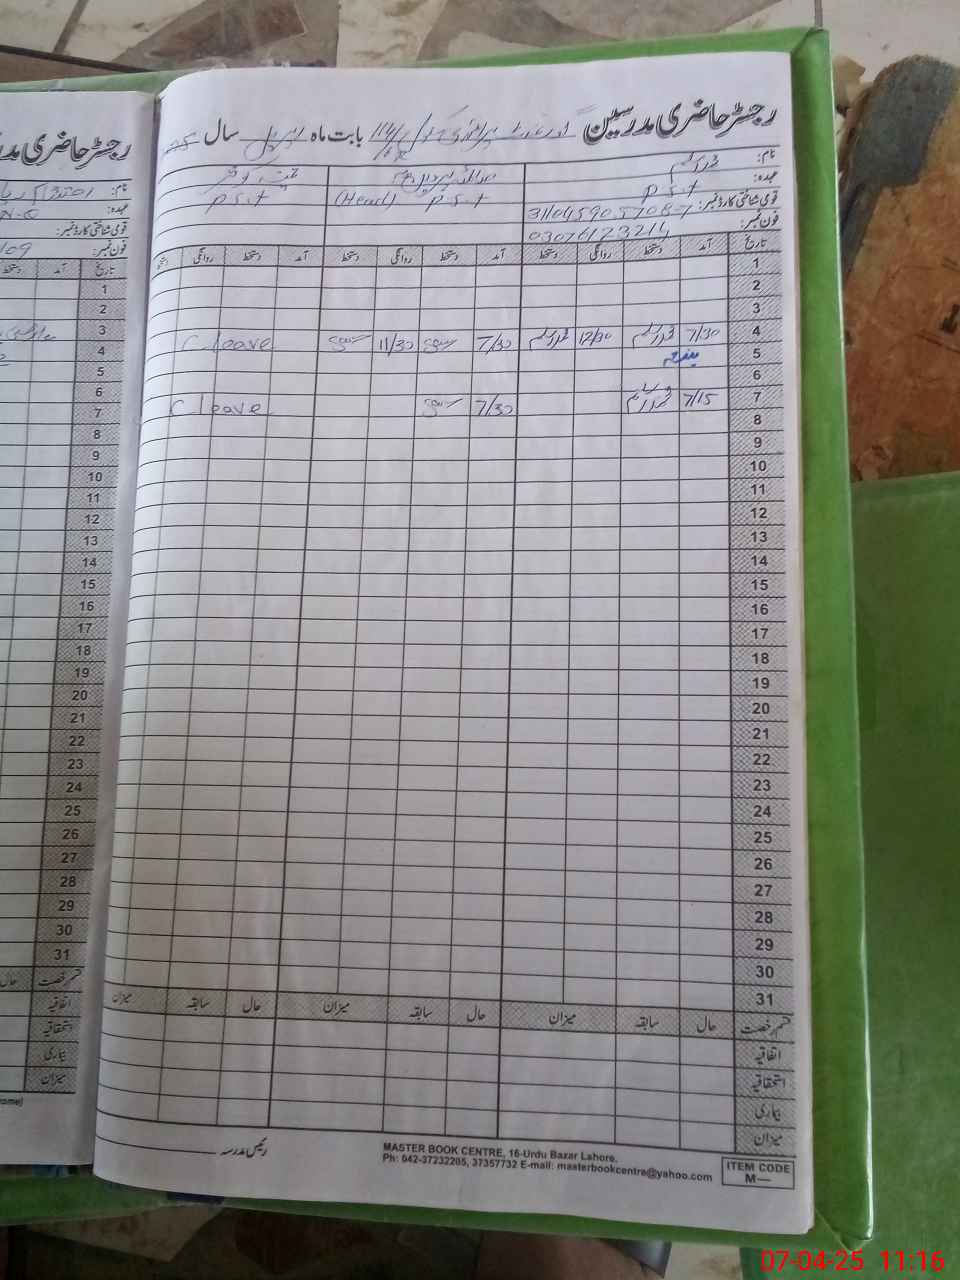 رجسٹر حاضری مدرسین
بابت ماہ اپریل سال 25
نام:
عہدہ: P.S.T
P.S.T (Head)
P.S.T
قومی شناختی کارڈ نمبر:
فون نمبر: 03076123214
تاریخ آمد دستخط روانگی دستخط آمد دستخط روانگی دستخط آمد دستخط روانگی
1
2
3
4 7/30 12/30 7/30 11/30 C leave
5
6
7 7/15 7/30 C leave
8
9
10
11
12
13
14
15
16
17
18
19
20
21
22
23
24
25
26
27
28
29
30
31
قسم رخصت حال سابقہ میزان حال سابقہ میزان حال سابقہ میزان
اتفاقیہ
استحقاقیہ
بیماری
میزان
رئیس مدرسہ
MASTER BOOK CENTRE, 16-Urdu Bazar Lahore.
Ph: 042-37232205, 37357732 E-mail: masterbookcentre@yahoo.com
ITEM CODE
M—
رجسٹر حاضری مد
نام:
عہدہ:
قومی شناختی کارڈ نمبر:
فون نمبر: 109
تاریخ آمد دستخط
1
2
3
4
5
6
7
8
9
10
11
12
13
14
15
16
17
18
19
20
21
22
23
24
25
26
27
28
29
30
31
قسم رخصت حال
اتفاقیہ
استحقاقیہ
بیماری
میزان
07-04-25 11:16